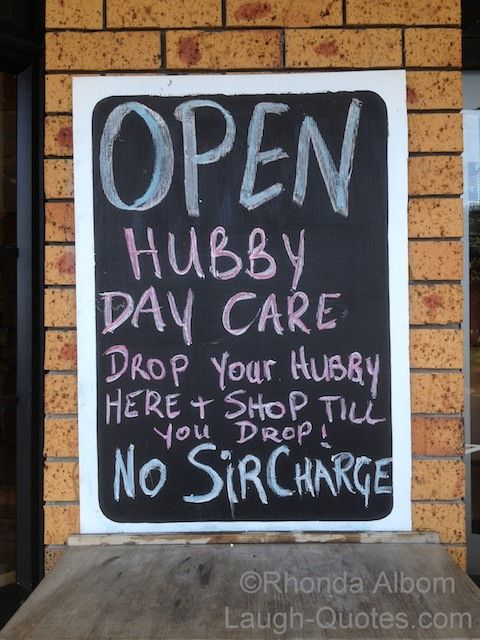 OPEN
HUBBY
DAY CARE
DROP Your HUBBY
HERE + SHOP TILL
YOU DROP!
NO SirCHARGE
©Rhonda Albom
Laugh-Quotes.com